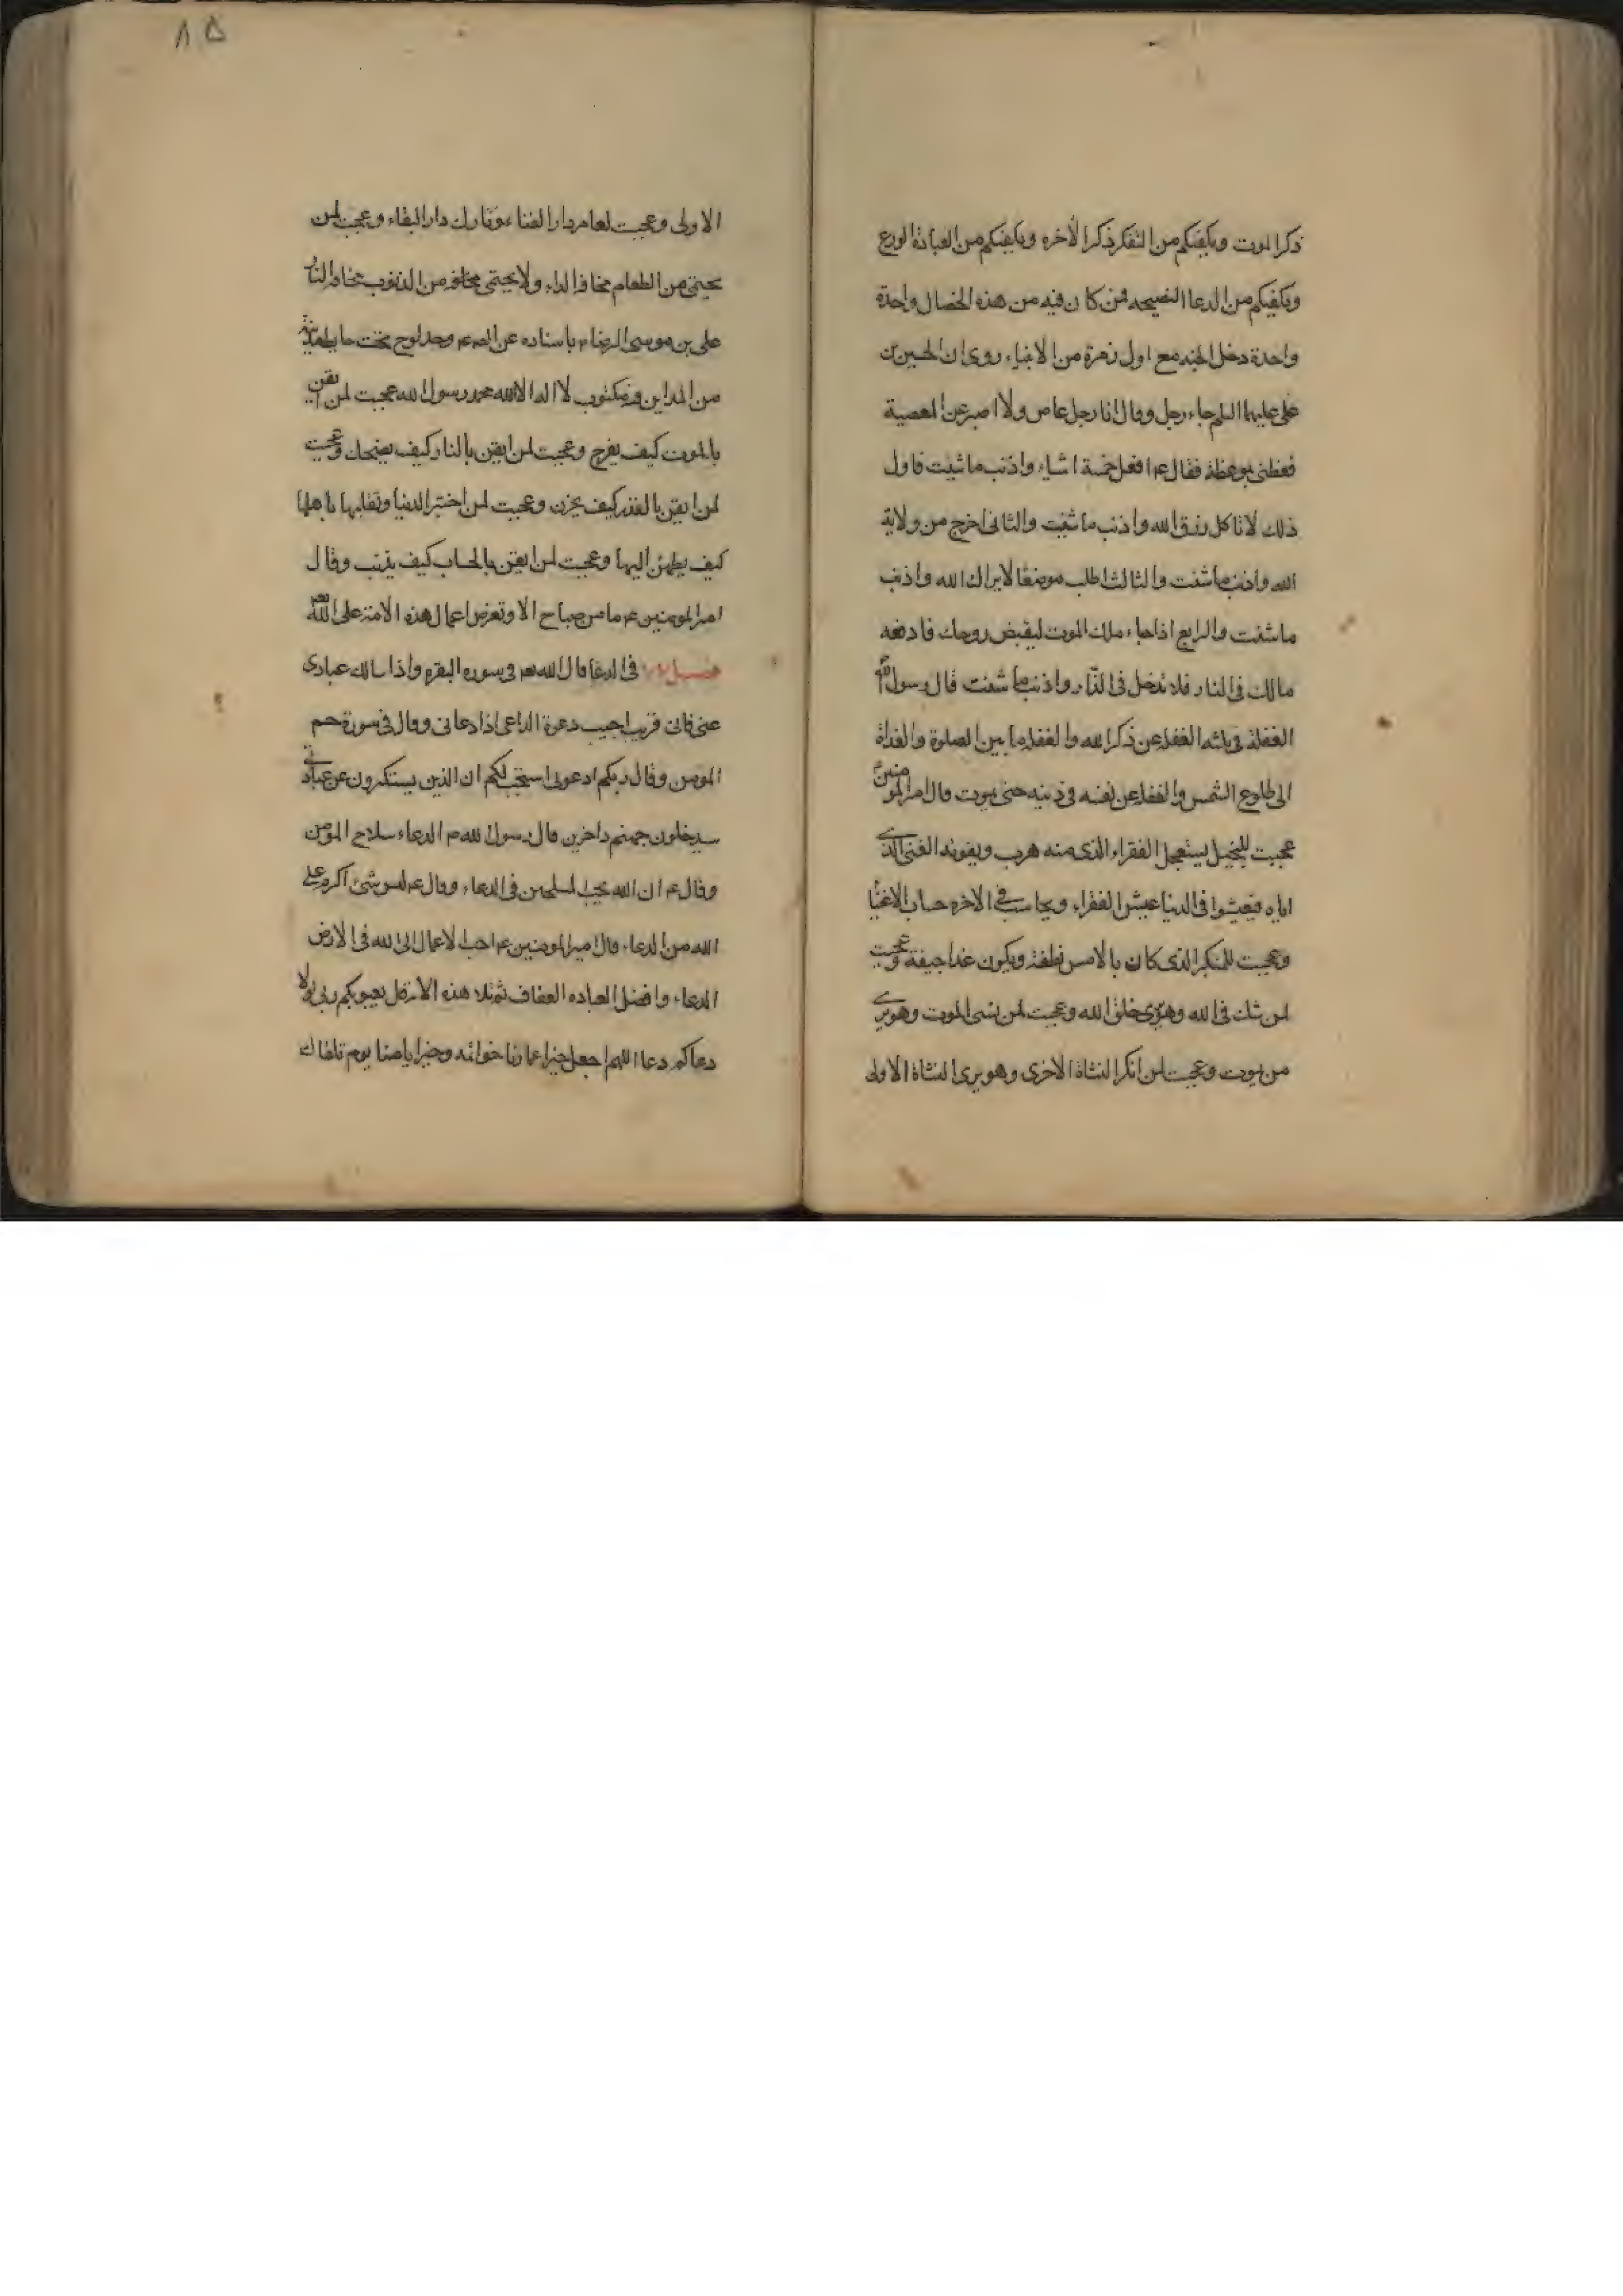 ذكر الموت ويكفيكم من التفكر ذكر الآخره ويكفيكم من العبادة الورع
ويكفيكم من الدعا النصيحه فمن كان فيه من هذه الخصال واحدة
واحدة دخل الجنه مع اول زمرة من الانبياء روى ان الحسين بن
على عليهما السلم جاءه رجل وقال انا رجل عاص ولا اصبر عن المعصية
فعظنى بموعظة فقال ع افعل خمسة اشياء واذنب ما شئت فاول
ذلك لا تاكل رزق الله واذنب ما شئت والثانى اخرج من ولاية
الله واذنب ما شئت والثالث اطلب موضعا لا يراك الله واذنب
ما شئت والرابع اذا جاء ملك الموت ليقبض روحك فادفعه
مالك فى النار فلا تدخل فى النار واذنب ما شئت قال رسول الله
الغفلة فى ثلثه الغفلة عن ذكر الله والغفلة ما بين الصلوة والغداة
الى طلوع الشمس والغفلة عن نفسه فى دينه حتى يموت قال امير المومنين
عجبت للبخيل يستعجل الفقراء الذى منه هرب ويفوته الغنى الذى
اياه فيعيشوا فى الدنيا عيش الفقراء ويحاسب فى الاخره حساب الاغنيا
وعجبت للمتكبر الذى كان بالامس نطفة ويكون غدا جيفة وعجبت
لمن شك فى الله وهو يرى خلق الله وعجبت لمن نسى الموت وهو يرى
من يموت وعجبت لمن انكر النشاة الاخرى وهو يرى النشاة الاولى
٨٥
الاولى وعجبت لعامر دار الفناء وتارك دار البقاء وعجبت لمن
يحتمى من الطعام مخافة الداء ولا يحتمى من الذنوب مخافة النار
على بن موسى الرضا ع باسناده عن وجد لوح تحت حايط مدينة
من المداين فيه مكتوب لا اله الا الله محمد رسول الله عجبت لمن ايقن
بالموت كيف يفرح وعجبت لمن ايقن بالنار كيف يضحك وعجبت
لمن ايقن بالقدر كيف يحزن وعجبت لمن اختبر الدنيا وتقلبها باهلها
كيف يطمئن اليها وعجبت لمن ايقن بالحساب كيف يذنب وقال
امير المومنين ع ما من صباح الا وتعرض اعمال هذه الامة على الله
فصل فى الدعا قال الله تع فى سوره البقره واذا سالك عبادى
عنى فانى قريب اجيب دعوة الداعى اذا دعانى وقال فى سورة حم
المومن وقال ربكم ادعونى استجب لكم ان الذين يستكبرون عن عبادتى
سيدخلون جهنم داخرين قال رسول الله ص الدعاء سلاح المومن
وقال ع ان الله يحب الملحين فى الدعاء وقال ع ليس شئ اكرم على
الله من الدعاء قال امير المومنين ع احب الاعمال الى الله فى الارض
الدعاء وافضل العباده العفاف ثم تلا هذه الاية قل يعبؤ بكم ربى لولا
دعاكم دعا اللهم اجعل خير اعمارنا خواتمه وخير ايامنا يوم تلقاك